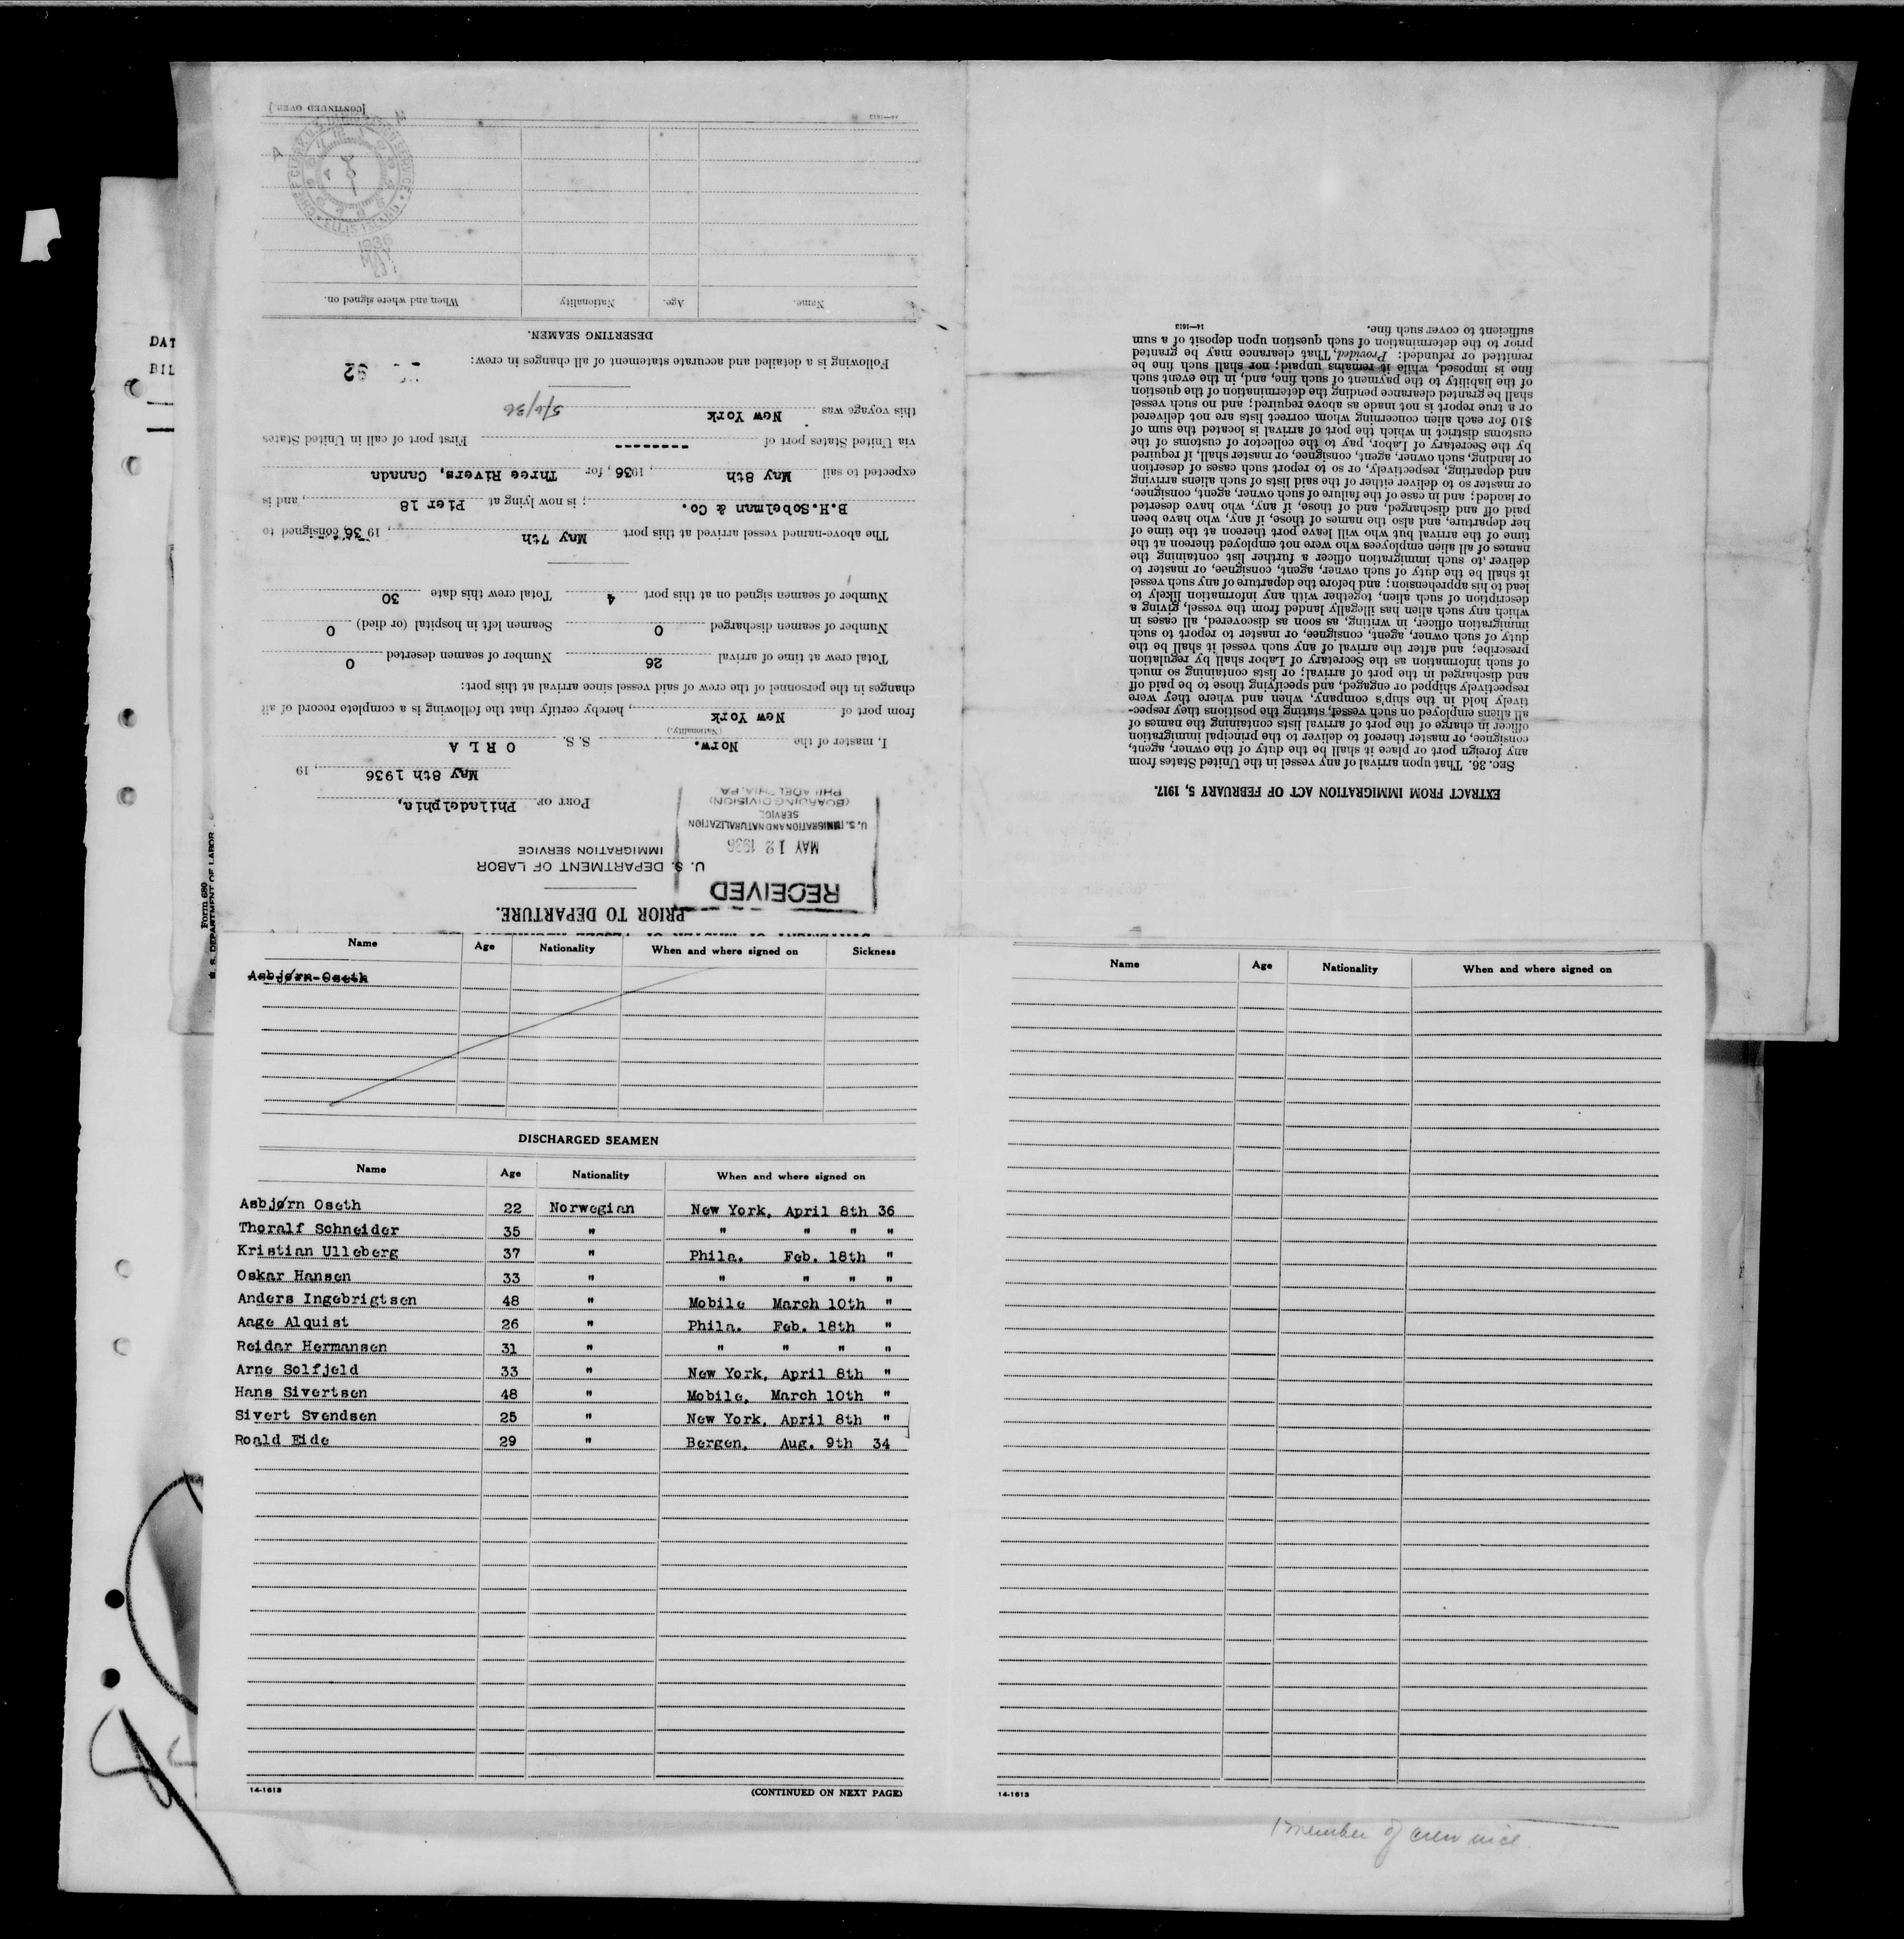 PRIOR TO DEPARTURE.
U. S. DEPARTMENT OF LABOR
IMMIGRATION SERVICE
RECEIVED
MAY 12 1936
U.S. IMMIGRATION AND NATURALIZATION
SERVICE
(BOARDING DIVISION)
PHILADELPHIA, PA
PORT OF Philadelphia,
May 8th 1936, 19
I, master of the Norw. S. S. O R L A
(Nationality.)
from port of New York, hereby certify that the following is a complete record of all
changes in the personnel of the crew of said vessel since arrival at this port:
Total crew at time of arrival 26 Number of seamen deserted 0
Number of seamen discharged 0 Seamen left in hospital (or died) 0
Number of seamen signed on at this port 4 Total crew this date 30
The above-named vessel arrived at this port May 7th, 1936, consigned to
B.H.Sobelman & Co.; is now lying at Pier 18, and is
expected to sail May 8th, 1936, for Three Rivers, Canada
via United States port of -------- First port of call in United States
this voyage was New York 5/6/36
Following is a detailed and accurate statement of all changes in crew:
92
DESERTING SEAMEN.
Name. Age. Nationality When and where signed on.
1936
MAY
CHIEF CLERK U.S. IMMIGRATION SERVICE
ELLIS ISLAND
14—1613 [CONTINUED OVER.]
EXTRACT FROM IMMIGRATION ACT OF FEBRUARY 5, 1917.
SEC. 36. That upon arrival of any vessel in the United States from
any foreign port or place it shall be the duty of the owner, agent,
consignee, or master thereof to deliver to the principal immigration
officer in charge of the port of arrival lists containing the names of
all aliens employed on such vessel, stating the positions they respec-
tively hold in the ship's company, when and where they were
respectively shipped or engaged, and specifying those to be paid off
and discharged in the port of arrival; or lists containing so much
of such information as the Secretary of Labor shall by regulation
prescribe; and after the arrival of any such vessel it shall be the
duty of such owner, agent, consignee, or master to report to such
immigration officer, in writing, as soon as discovered, all cases in
which any such alien has illegally landed from the vessel, giving a
description of such alien, together with any information likely to
lead to his apprehension; and before the departure of any such vessel
it shall be the duty of such owner, agent, consignee, or master to
deliver to such immigration officer a further list containing the
names of all alien employees who were not employed thereon at the
time of the arrival but who will leave port thereon at the time of
her departure, and also the names of those, if any, who have been
paid off and discharged, and of those, if any, who have deserted
or landed; and in case of the failure of such owner, agent, consignee,
or master so to deliver either of the said lists of such aliens arriving
and departing, respectively, or so to report such cases of desertion
or landing, such owner, agent, consignee, or master, shall, if required
by the Secretary of Labor, pay to the collector of customs of the
customs district in which the port of arrival is located the sum of
$10 for each alien concerning whom correct lists are not delivered
or a true report is not made as above required; and no such vessel
shall be granted clearance pending the determination of the question
of the liability to the payment of such fine, and, in the event such
fine is imposed, while it remains unpaid; nor shall such fine be
remitted or refunded: Provided, That clearance may be granted
prior to the determination of such question upon deposit of a sum
sufficient to cover such fine.
14—1613
DAT
BIL
Form 680
U. S. DEPARTMENT OF LABOR
Name Age Nationality When and where signed on Sickness
Asbjørn Oseth
DISCHARGED SEAMEN
Name Age Nationality When and where signed on
Asbjørn Oseth 22 Norwegian New York, April 8th 36
Thoralf Schneider 35 " " " " "
Kristian Ulleberg 37 " Phila. Feb. 18th "
Oskar Hansen 33 " " " " "
Anders Ingebrigtsen 48 " Mobile March 10th "
Aage Alquist 26 " Phila. Feb. 18th "
Reidar Hermansen 31 " " " " "
Arne Solfjeld 33 " New York, April 8th "
Hans Sivertsen 48 " Mobile, March 10th "
Sivert Svendsen 25 " New York, April 8th "
Roald Eide 29 " Bergen, Aug. 9th 34
14-1613 (CONTINUED ON NEXT PAGE)
Name Age Nationality When and where signed on
14-1613
1 member of crew